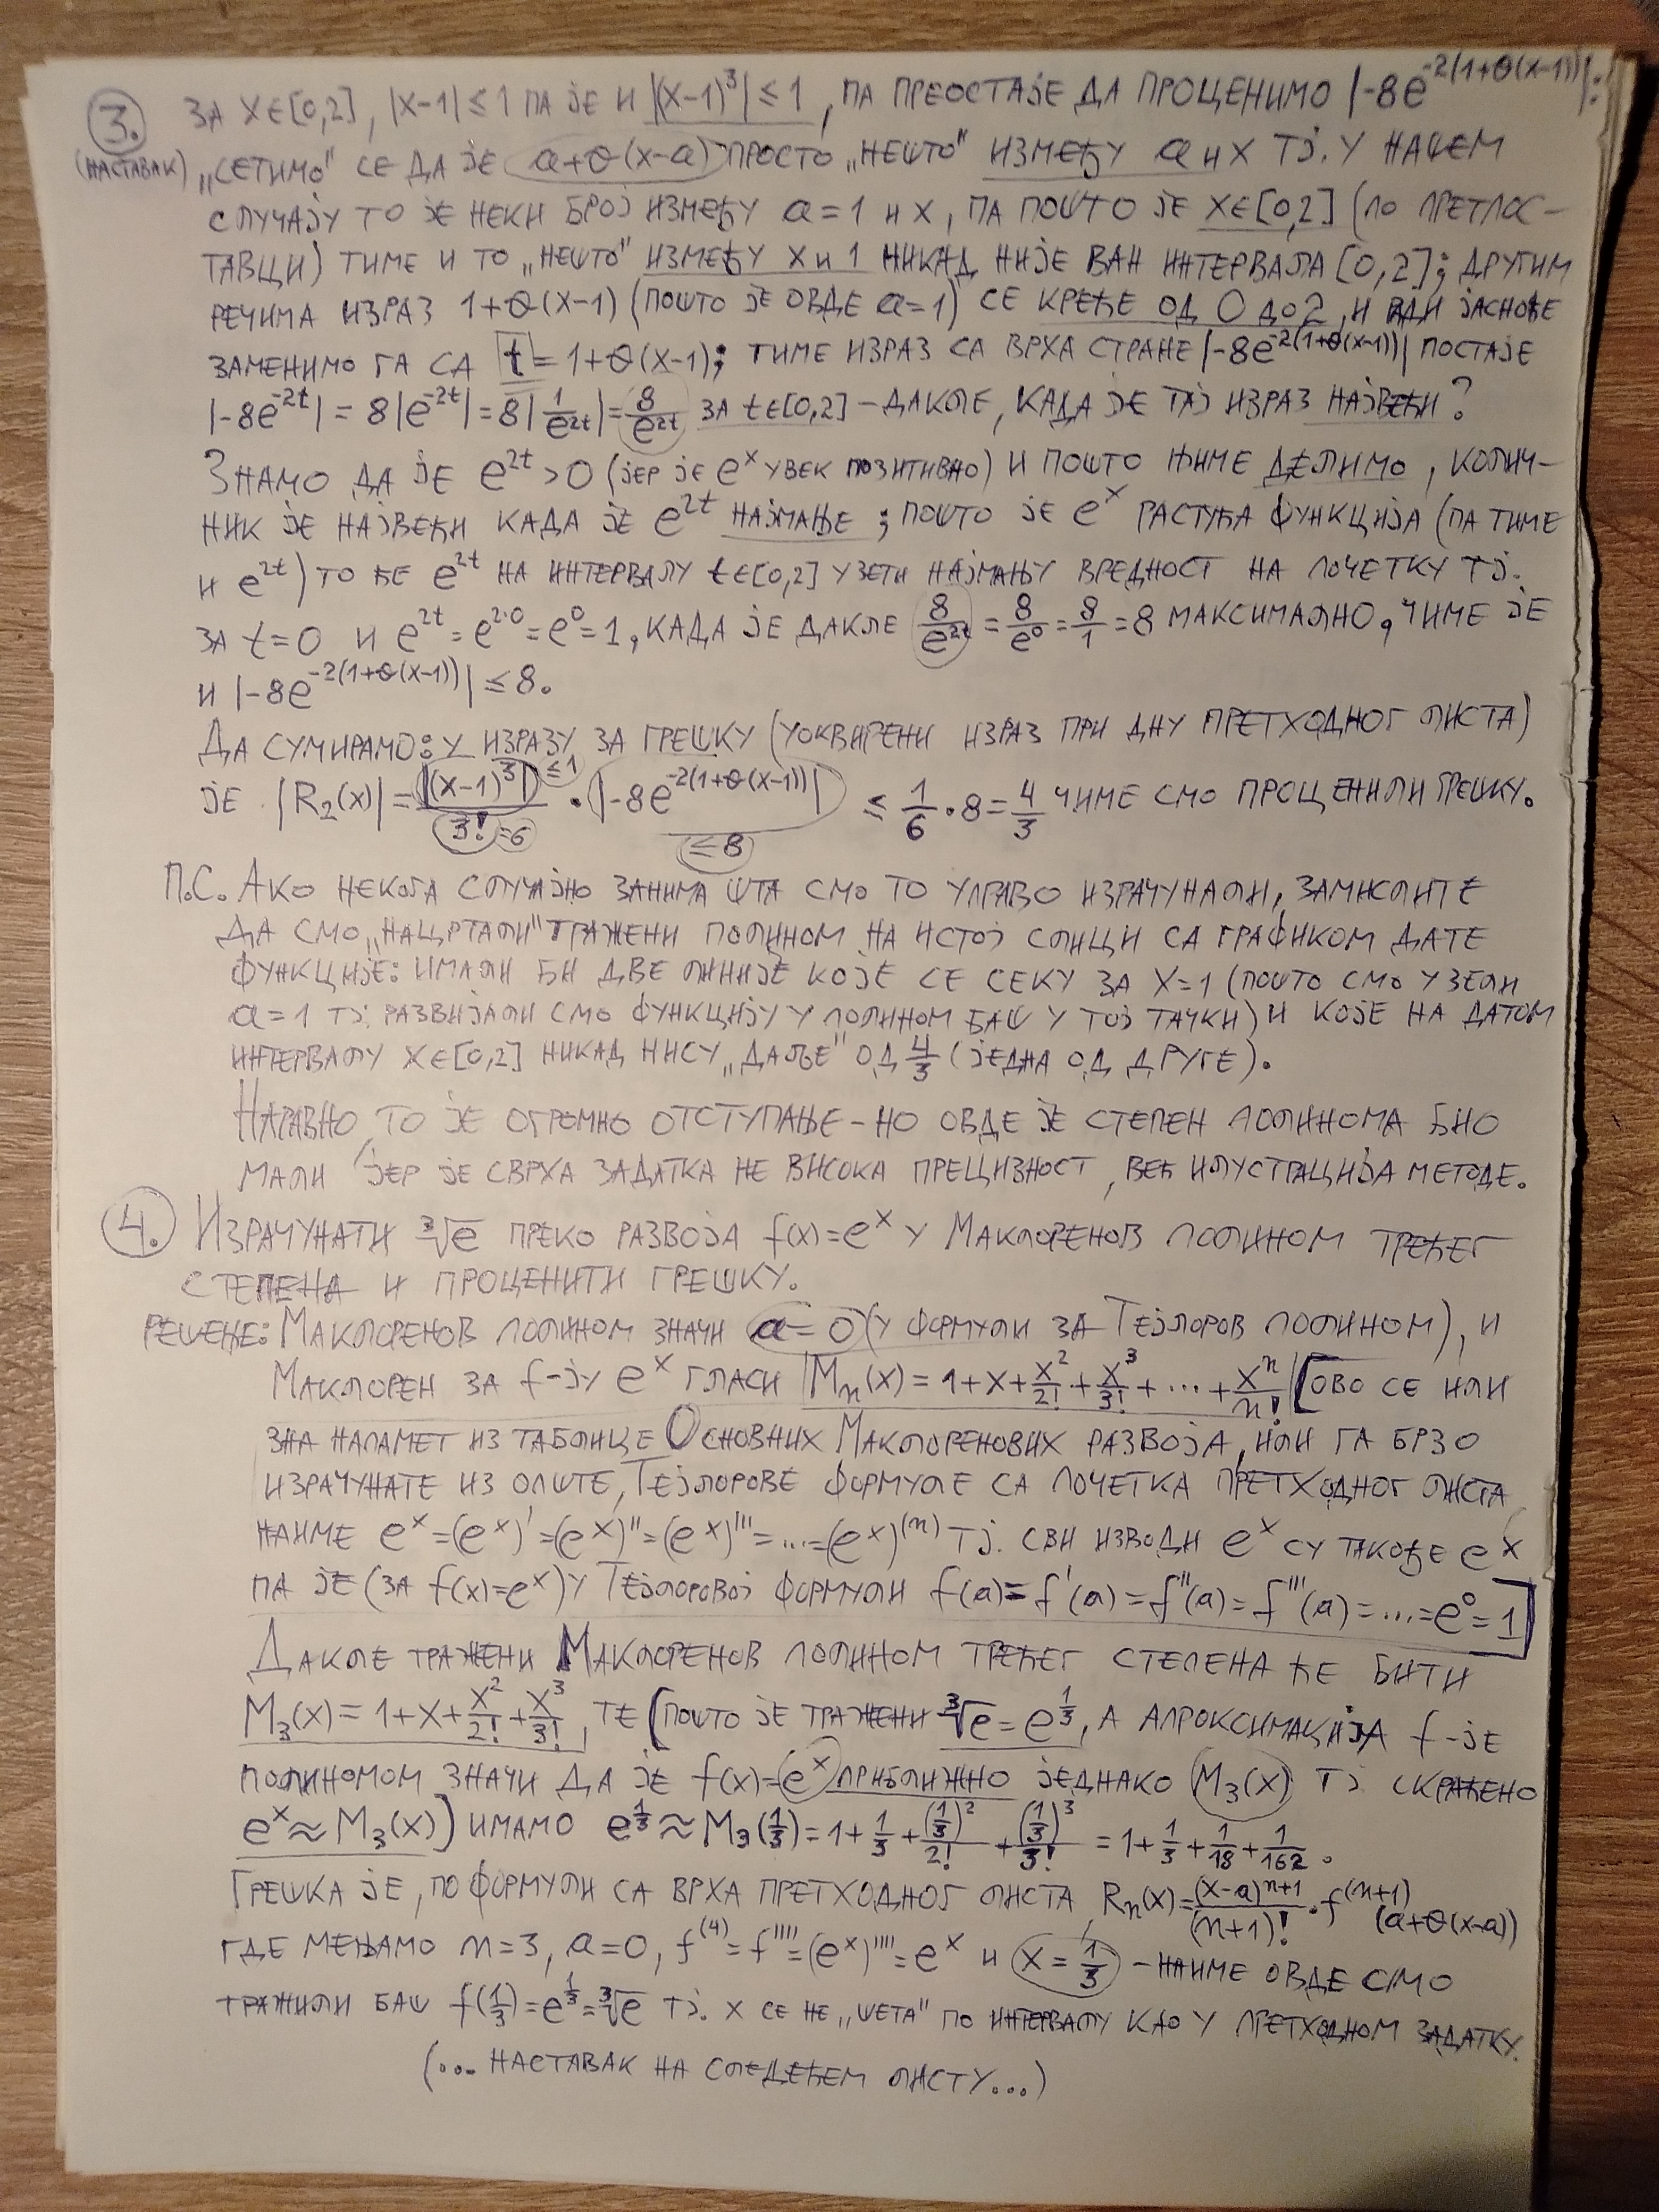 3. ЗА X∈[0,2], |X-1|≤1 ПА ЈЕ И |(X-1)³|≤1, ПА ПРЕОСТАЈЕ ДА ПРОЦЕНИМО |-8e^(-2(1+θ(X-1)))|:
(НАСТАВАК) „СЕТИМО" СЕ ДА ЈЕ a+θ(x-a) ПРОСТО „НЕШТО" ИЗМЕЂУ a И X ТЈ. У НАШЕМ
СЛУЧАЈУ ТО ЈЕ НЕКИ БРОЈ ИЗМЕЂУ a=1 И X, ПА ПОШТО ЈЕ X∈[0,2] (ПО ПРЕТПОС-
ТАВЦИ) ТИМЕ И ТО „НЕШТО" ИЗМЕЂУ X И 1 НИКАД НИЈЕ ВАН ИНТЕРВАЛА [0,2]; ДРУГИМ
РЕЧИМА ИЗРАЗ 1+θ(X-1) (ПОШТО ЈЕ ОВДЕ a=1) СЕ КРЕЋЕ ОД 0 ДО 2, И ЈАСНОЋЕ
ЗАМЕНИМО ГА СА t=1+θ(X-1); ТИМЕ ИЗРАЗ СА ВРХА СТРАНЕ |-8e^(-2(1+θ(X-1)))| ПОСТАЈЕ
|-8e^(-2t)| = 8|e^(-2t)| = 8|1/e^(2t)| = 8/e^(2t) ЗА t∈[0,2] – ДАКЛЕ, КАДА ЈЕ ТАЈ ИЗРАЗ НАЈВЕЋИ?
ЗНАМО ДА ЈЕ e^(2t)>0 (ЈЕР ЈЕ e^x УВЕК ПОЗИТИВНО) И ПОШТО ЊИМЕ ДЕЛИМО, КОЛИЧ-
НИК ЈЕ НАЈВЕЋИ КАДА ЈЕ e^(2t) НАЈМАЊЕ; ПОШТО ЈЕ e^x РАСТУЋА ФУНКЦИЈА (ПА ТИМЕ
И e^(2t)) ТО ЋЕ e^(2t) НА ИНТЕРВАЛУ t∈[0,2] УЗЕТИ НАЈМАЊУ ВРЕДНОСТ НА ПОЧЕТКУ ТЈ.
ЗА t=0 И e^(2t)=e^(2·0)=e^0=1, КАДА ЈЕ ДАКЛЕ 8/e^(2t) = 8/e^0 = 8/1 = 8 МАКСИМАЛНО, ЧИМЕ ЈЕ
И |-8e^(-2(1+θ(X-1)))| ≤ 8.
ДА СУМИРАМО: У ИЗРАЗУ ЗА ГРЕШКУ (УОКВИРЕНИ ИЗРАЗ ПРИ ДНУ ПРЕТХОДНОГ ЛИСТА)
ЈЕ |R₂(x)| = |(X-1)³| ≤1 / 3! =6 · |-8e^(-2(1+θ(X-1)))| ≤8 ≤ 1/6 · 8 = 4/3 ЧИМЕ СМО ПРОЦЕНИЛИ ГРЕШКУ.
П.С. АКО НЕКОГА СЛУЧАЈНО ЗАНИМА ШТА СМО ТО УПРАВО ИЗРАЧУНАЛИ, ЗАМИСЛИТЕ
ДА СМО „НАЦРТАЛИ" ТРАЖЕНИ ПОЛИНОМ НА ИСТОЈ СЛИЦИ СА ГРАФИКОМ ДАТЕ
ФУНКЦИЈЕ: ИМАЛИ БИ ДВЕ ЛИНИЈЕ КОЈЕ СЕ СЕКУ ЗА X=1 (ПОШТО СМО УЗЕЛИ
a=1 ТЈ. РАЗВИЈАЛИ СМО ФУНКЦИЈУ У ПОЛИНОМ БАШ У ТОЈ ТАЧКИ) И КОЈЕ НА ДАТОМ
ИНТЕРВАЛУ X∈[0,2] НИКАД НИСУ „ДАЉЕ" ОД 4/3 (ЈЕДНА ОД ДРУГЕ).
НАРАВНО, ТО ЈЕ ОГРОМНО ОТСТУПАЊЕ – НО ОВДЕ ЈЕ СТЕПЕН ПОЛИНОМА БИО
МАЛИ ЈЕР ЈЕ СВРХА ЗАДАТКА НЕ ВИСОКА ПРЕЦИЗНОСТ, ВЕЋ ИЛУСТРАЦИЈА МЕТОДЕ.
4. ИЗРАЧУНАТИ ∛e ПРЕКО РАЗВОЈА f(x)=e^x У МАКЛОРЕНОВ ПОЛИНОМ ТРЕЋЕГ
СТЕПЕНА И ПРОЦЕНИТИ ГРЕШКУ.
РЕШЕЊЕ: МАКЛОРЕНОВ ПОЛИНОМ ЗНАЧИ a=0 (У ФОРМУЛИ ЗА ТЕЈЛОРОВ ПОЛИНОМ), И
МАКЛОРЕН ЗА f-ЈУ e^x ГЛАСИ Mₙ(x) = 1+x+x²/2!+x³/3!+...+xⁿ/n! [ОВО СЕ ИЛИ
ЗНА НАПАМЕТ ИЗ ТАБЛИЦЕ ОСНОВНИХ МАКЛОРЕНОВИХ РАЗВОЈА, ИЛИ ГА БРЗО
ИЗРАЧУНАТЕ ИЗ ОПШТЕ, ТЕЈЛОРОВЕ ФОРМУЛЕ СА ПОЧЕТКА ПРЕТХОДНОГ ЛИСТА
НАИМЕ e^x=(e^x)'=(e^x)''=(e^x)'''=...=(e^x)^(n) ТЈ. СВИ ИЗВОДИ e^x СУ ТАКОЂЕ e^x
ПА ЈЕ (ЗА f(x)=e^x) У ТЕЈЛОРОВОЈ ФОРМУЛИ f(a)=f'(a)=f''(a)=f'''(a)=...=e^0=1]
ДАКЛЕ ТРАЖЕНИ МАКЛОРЕНОВ ПОЛИНОМ ТРЕЋЕГ СТЕПЕНА ЋЕ БИТИ
M₃(x) = 1+x+x²/2!+x³/3!, ТЕ [ПОШТО ЈЕ ТРАЖЕНИ ∛e=e^(1/3), А АПРОКСИМАЦИЈА f-ЈЕ
ПОЛИНОМОМ ЗНАЧИ ДА ЈЕ f(x)=e^x ПРИБЛИЖНО ЈЕДНАКО M₃(x) ТЈ. СКРАЋЕНО
e^x≈M₃(x)] ИМАМО e^(1/3)≈M₃(1/3)=1+1/3+(1/3)²/2!+(1/3)³/3! = 1+1/3+1/18+1/162.
ГРЕШКА ЈЕ, ПО ФОРМУЛИ СА ВРХА ПРЕТХОДНОГ ЛИСТА Rₙ(x)=(x-a)^(n+1)/(n+1)! · f^(n+1)(a+θ(x-a))
ГДЕ МЕЊАМО n=3, a=0, f^(4)=f''''=(e^x)''''=e^x И x=1/3 – НАИМЕ ОВДЕ СМО
ТРАЖИЛИ БАШ f(1/3)=e^(1/3)=∛e ТЈ. X СЕ НЕ „ШЕТА" ПО ИНТЕРВАЛУ КАО У ПРЕТХОДНОМ ЗАДАТКУ.
(... НАСТАВАК НА СЛЕДЕЋЕМ ЛИСТУ...)